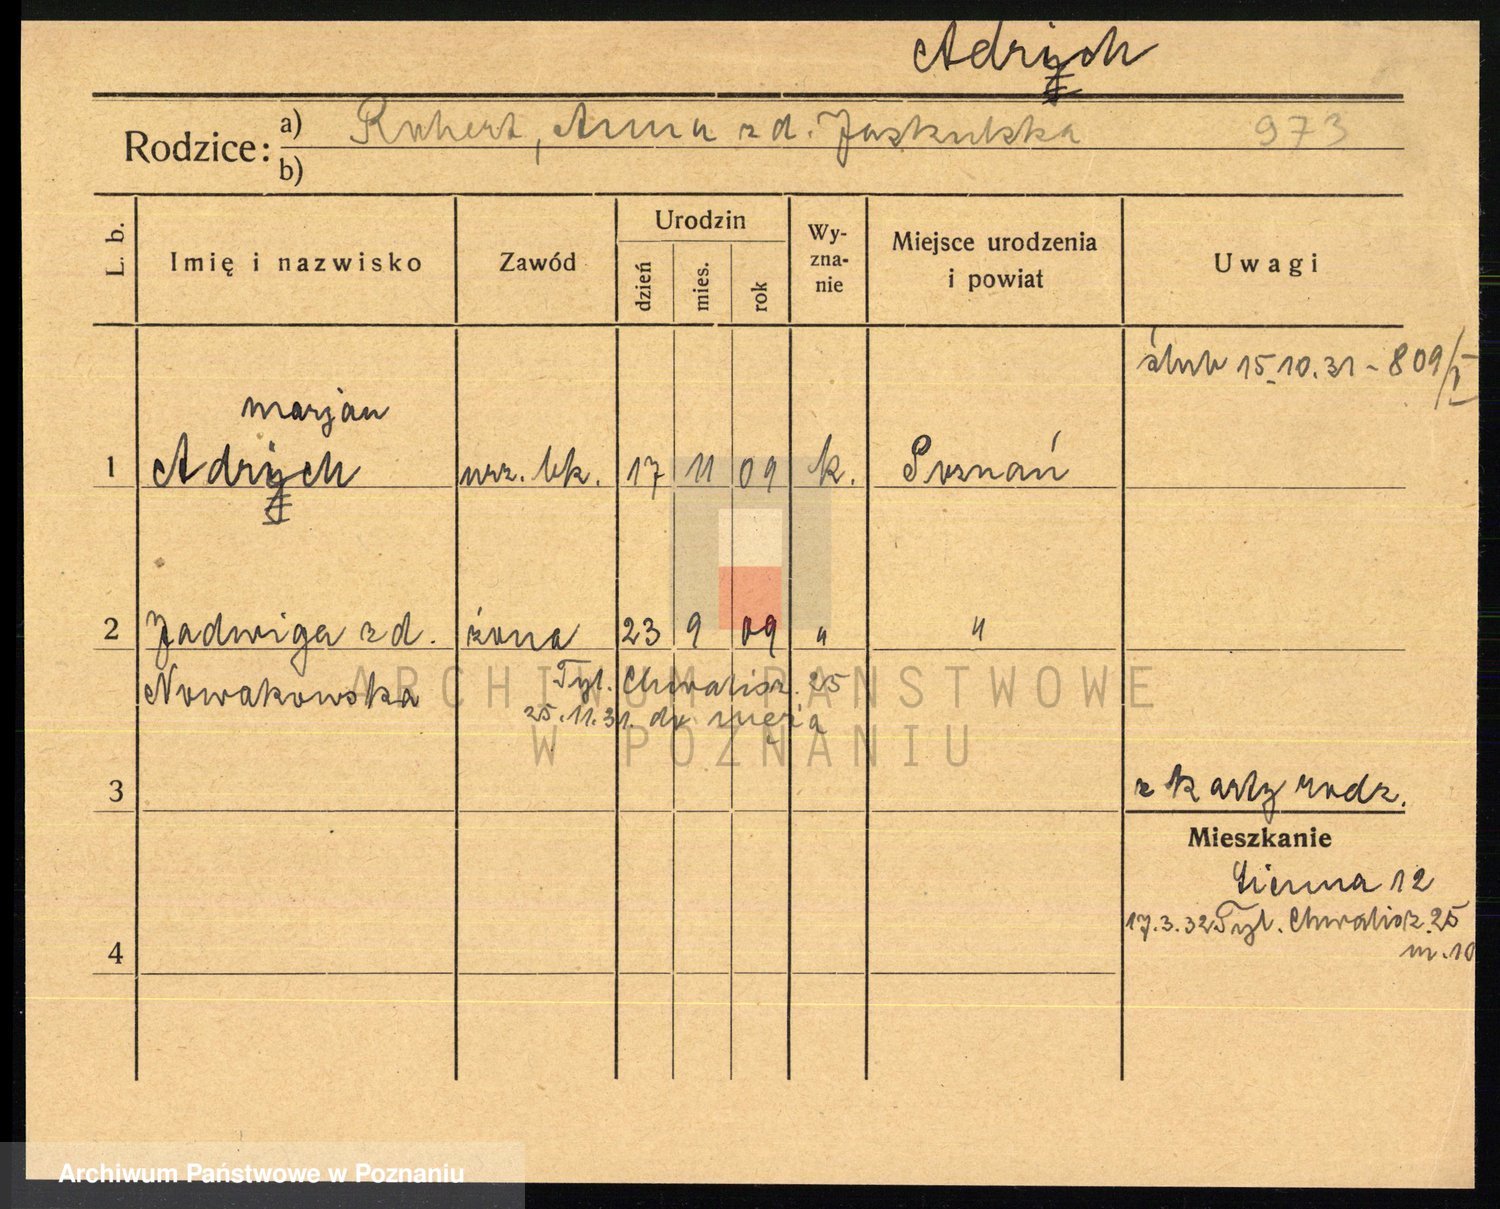 Adrych
Rodzice: a) Robert, Anna zd. Jaskulska 973
b)
L. b. Imię i nazwisko Zawód Urodzin dzień mies. rok Wy-zna-nie Miejsce urodzenia i powiat Uwagi
ślub 15.10.31 - 809/I
marjan
1 Adrych urz. bk. 17 11 09 k. Poznań
2 Jadwiga zd. żona 23 9 09 " "
Nowakowska Tyl. Chwalisz. 25
25.11.31. do męża
3 z karty rodz.
Mieszkanie
Sienna 12
17.3.32 Tyl. Chwalisz. 25
m. 10
4
ARCHIWUM PAŃSTWOWE
W POZNANIU
Archiwum Państwowe w Poznaniu